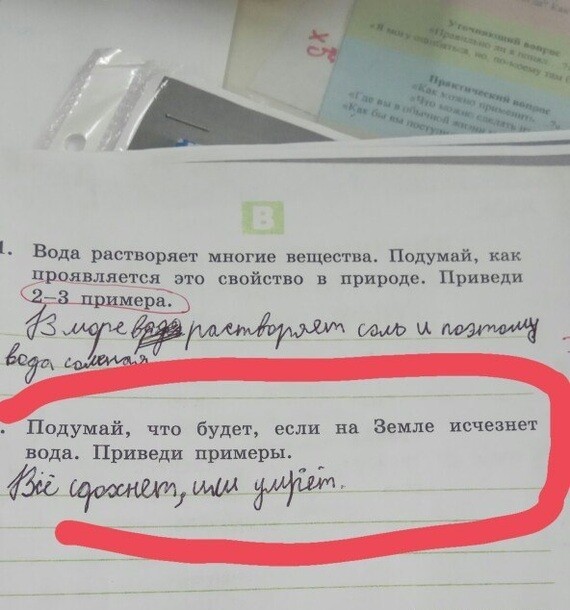 x
Уточняющий вопрос
Практический вопрос
«Как можно применить,
«Что можно сделать из
«Где вы в обычной жизни
«Как бы вы поступи
В
1. Вода растворяет многие вещества. Подумай, как
проявляется это свойство в природе. Приведи
2–3 примера.
В море вода растворяет соль и поэтому
вода соленая
. Подумай, что будет, если на Земле исчезнет
вода. Приведи примеры.
Всё сдохнет, или умрёт.